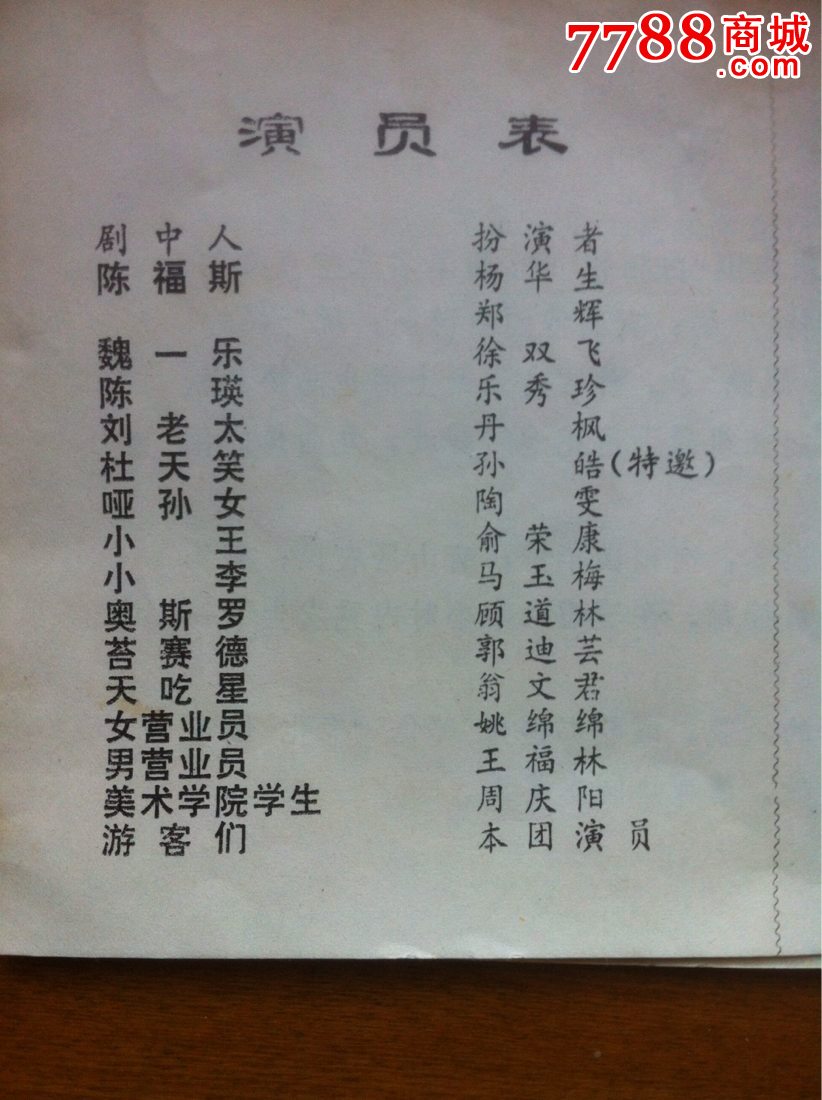 7788商城
.com
演员表
剧中人 扮演者
陈福斯 杨华生
郑辉
魏一乐 徐双飞
陈瑛 乐秀珍
刘老太 丹枫
杜天笑 孙皓(特邀)
哑孙女 陶雯
小王 俞荣康
小李 马玉梅
奥斯罗 顾道林
苔赛德 郭迪芸
天吃星 翁文君
女营业员 姚绵绵
男营业员 王福林
美术学院学生 周庆阳
游客们 本团演员